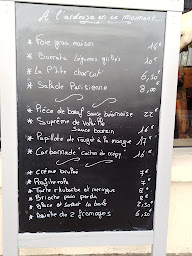 A l'ardoise en ce moment...
* Foie gras maison 16€
* Burrata légumes grillés 10€
* La P'tite charcut' 6,50€
* Salade Parisienne 8,00
* Pièce de bœuf sauce béarnaise 22€
* Suprême de Volaille
Sauce 16€
* Papillote de à la mangue 17€
* Carbonnade 16€
* crème brulée
* Profiterole
* Tarte rhubarbe et meringue 8€
* Brioche pain perdu 8€
* Glace et sorbet la boule 2,50€
* Assiette de 3 fromages 6,50€